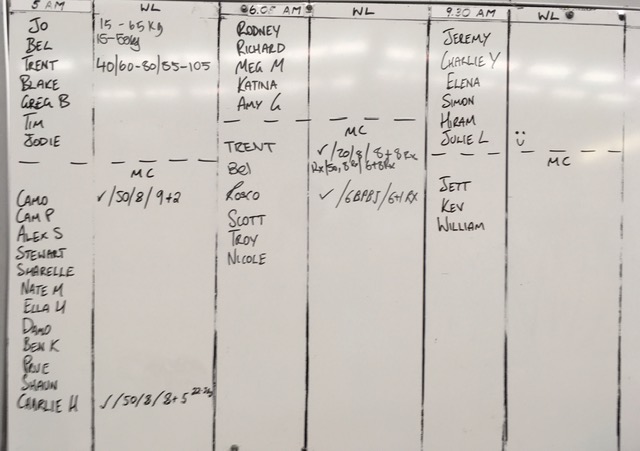 5 AM WL
JO 15 - 65 Kg
BEL 15-50kg
TRENT 40/60-80/55-105
BLAKE
GREG B
TIM
JODIE
MC
CAMO ✓/50/8/9+2
CAM P
ALEX S
STEWART
SHARELLE
NATE M
ELLA H
DAMO
BEN K
PRUE
SHAUN
CHARLIE H ✓/50/8/8+5
6.05 AM WL
RODNEY
RICHARD
MEG M
KATINA
AMY G
MC
TRENT ✓/20/8/8+8 Rx
Bel Rx/50, 8 Rx/6+8 Rx
ROSCO ✓/6BPBJ/6+1 RX
SCOTT
TROY
NICOLE
9.30 AM WL
JEREMY
CHARLIE Y
ELENA
SIMON
HIRAM
JULIE L
MC
JETT
KEV
WILLIAM